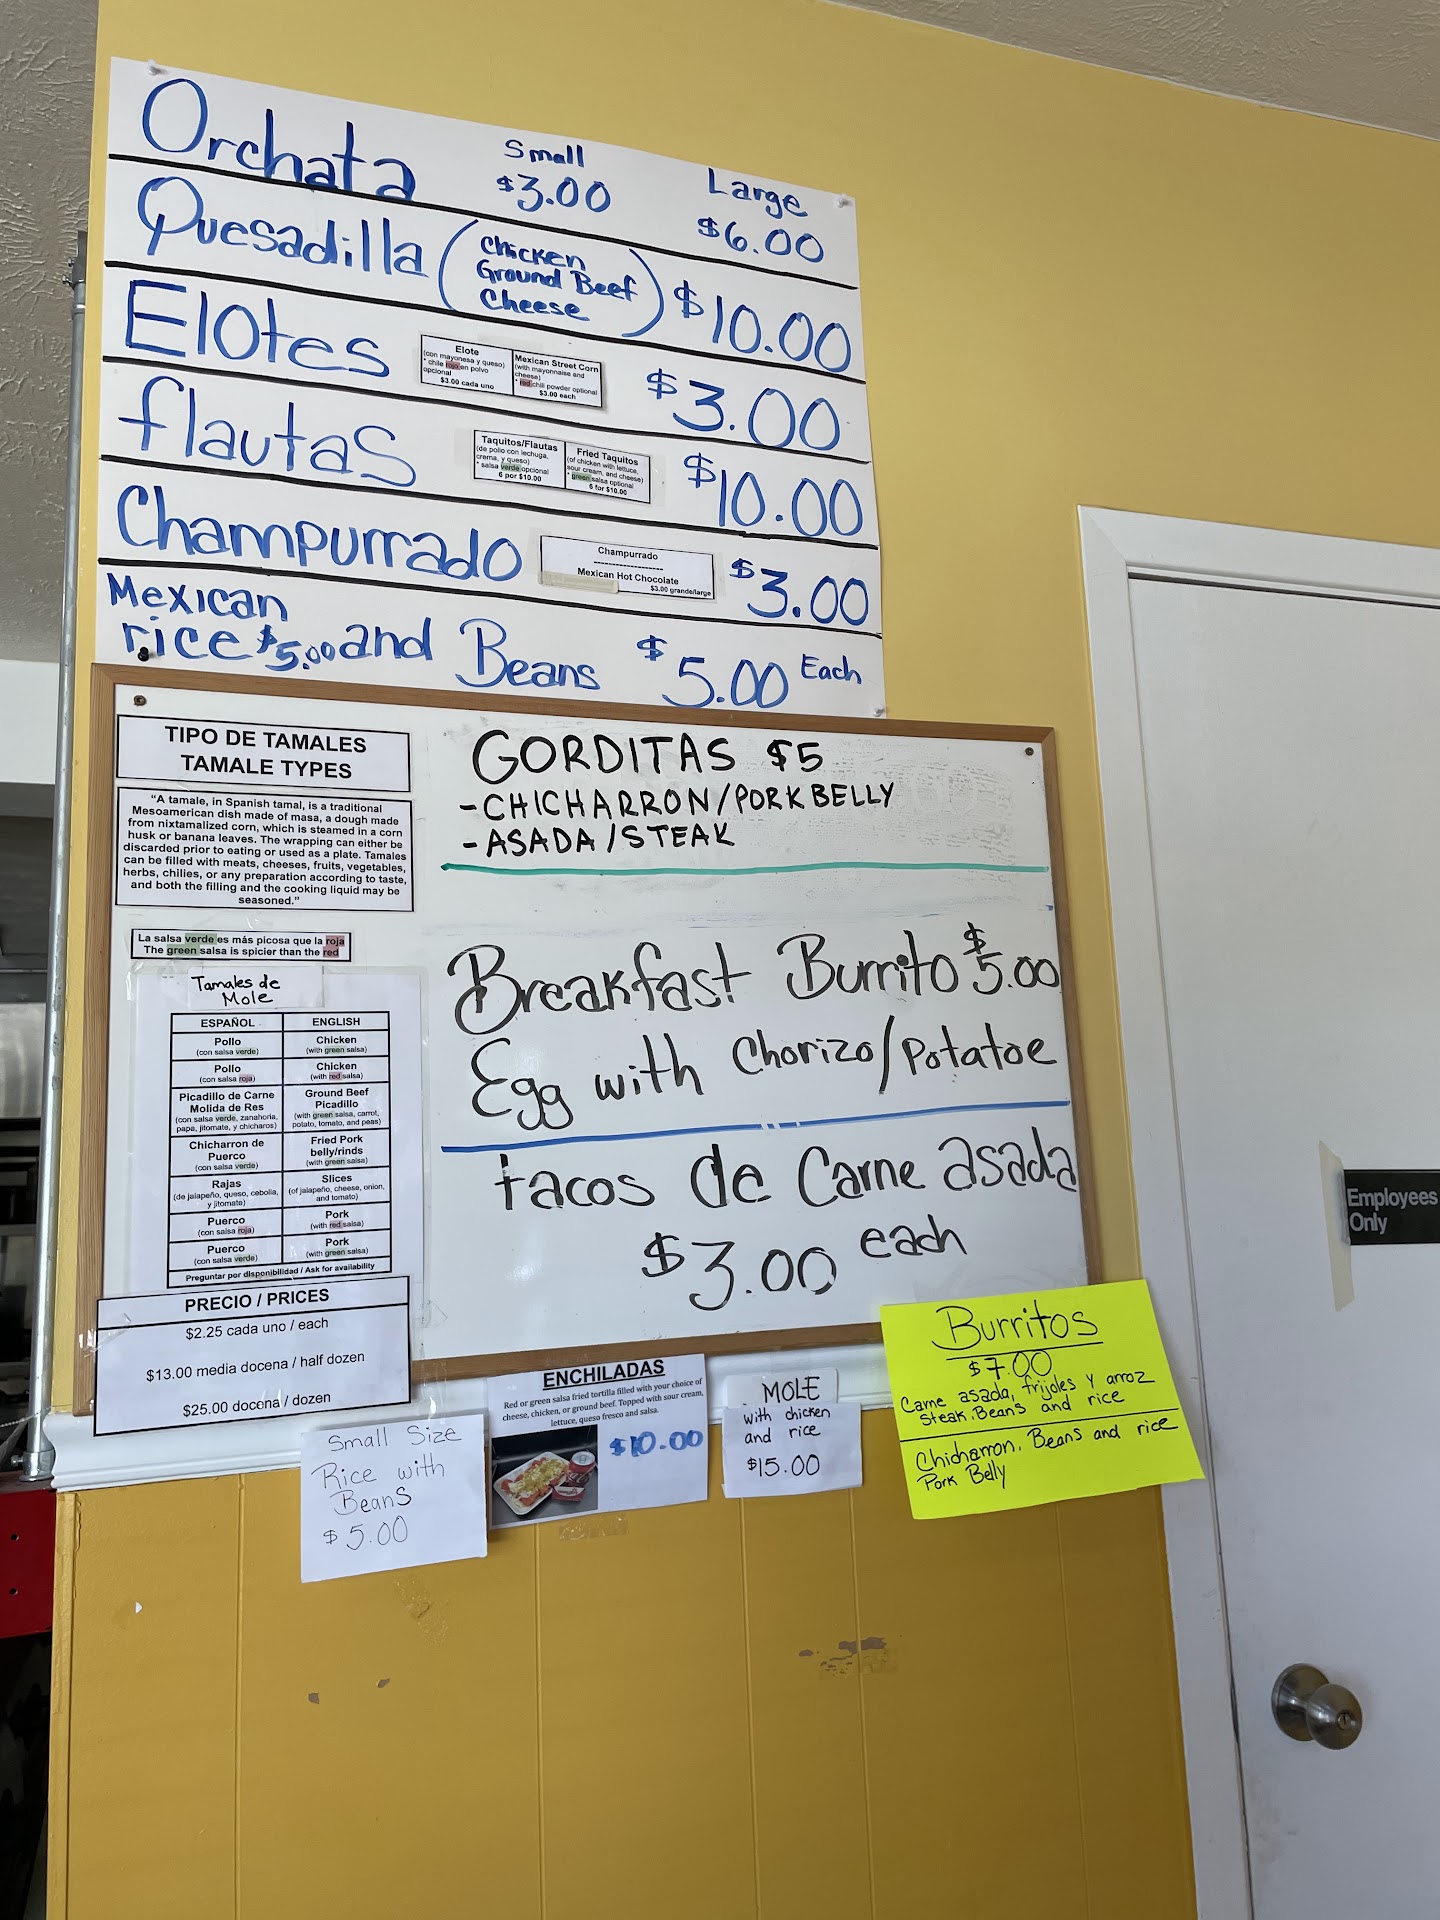 Orchata Small $3.00 Large $6.00
Quesadilla (Chicken Ground Beef Cheese) $10.00
Elotes
Elote
(con mayonesa y queso)
* chile rojo en polvo
opcional
$3.00 cada uno
Mexican Street Corn
(with mayonnaise and
cheese)
* red chili powder optional
$3.00 each
$3.00
flautas
Taquitos/Flautas
(de pollo con lechuga,
crema, y queso)
* salsa verde opcional
6 por $10.00
Fried Taquitos
(of chicken with lettuce,
sour cream, and cheese)
* green salsa optional
6 for $10.00
$10.00
Champurrado
Champurrado
--------------------
Mexican Hot Chocolate
$3.00 grande/large
$3.00
Mexican
rice $5.00 and Beans $5.00 Each
TIPO DE TAMALES
TAMALE TYPES
"A tamale, in Spanish tamal, is a traditional
Mesoamerican dish made of masa, a dough made
from nixtamalized corn, which is steamed in a corn
husk or banana leaves. The wrapping can either be
discarded prior to eating or used as a plate. Tamales
can be filled with meats, cheeses, fruits, vegetables,
herbs, chilies, or any preparation according to taste,
and both the filling and the cooking liquid may be
seasoned."
La salsa verde es más picosa que la roja
The green salsa is spicier than the red
Tamales de
Mole
ESPAÑOL ENGLISH
Pollo
(con salsa verde)
Chicken
(with green salsa)
Pollo
(con salsa roja)
Chicken
(with red salsa)
Picadillo de Carne
Molida de Res
(con salsa verde, zanahoria,
papa, jitomate, y chicharos)
Ground Beef
Picadillo
(with green salsa, carrot,
potato, tomato, and peas)
Chicharron de
Puerco
(con salsa verde)
Fried Pork
belly/rinds
(with green salsa)
Rajas
(de jalapeño, queso, cebolla,
y jitomate)
Slices
(of jalapeño, cheese, onion,
and tomato)
Puerco
(con salsa roja)
Pork
(with red salsa)
Puerco
(con salsa verde)
Pork
(with green salsa)
Preguntar por disponibilidad / Ask for availability
PRECIO / PRICES
$2.25 cada uno / each
$13.00 media docena / half dozen
$25.00 docena / dozen
GORDITAS $5
-CHICHARRON/PORK BELLY
-ASADA/STEAK
Breakfast Burrito $5.00
Egg with Chorizo/Potatoe
tacos de Carne asada
$3.00 each
Small Size
Rice with
Beans
$5.00
ENCHILADAS
Red or green salsa fried tortilla filled with your choice of
cheese, chicken, or ground beef. Topped with sour cream,
lettuce, queso fresco and salsa.
$10.00
MOLE
with chicken
and rice
$15.00
Burritos
$7.00
Carne asada, frijoles y arroz
Steak, Beans and rice
Chicharron, Beans and rice
Pork Belly
Employees
Only